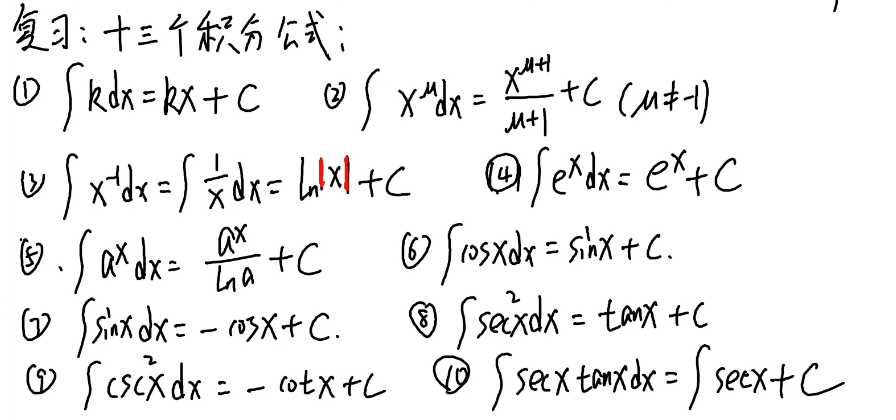 复习：十三个积分公式：
① ∫kdx = kx + C ② ∫x^μdx = x^(μ+1)/(μ+1) + C (μ≠-1)
③ ∫x^-1dx = ∫1/x dx = ln|x| + C ④ ∫e^x dx = e^x + C
⑤. ∫a^x dx = a^x/ln a + C ⑥ ∫cosxdx = sinx + C.
⑦ ∫sinxdx = - cosx + C. ⑧ ∫sec²xdx = tanx + C
⑨ ∫csc²xdx = - cotx + C ⑩ ∫secx tanxdx = ∫secx + C